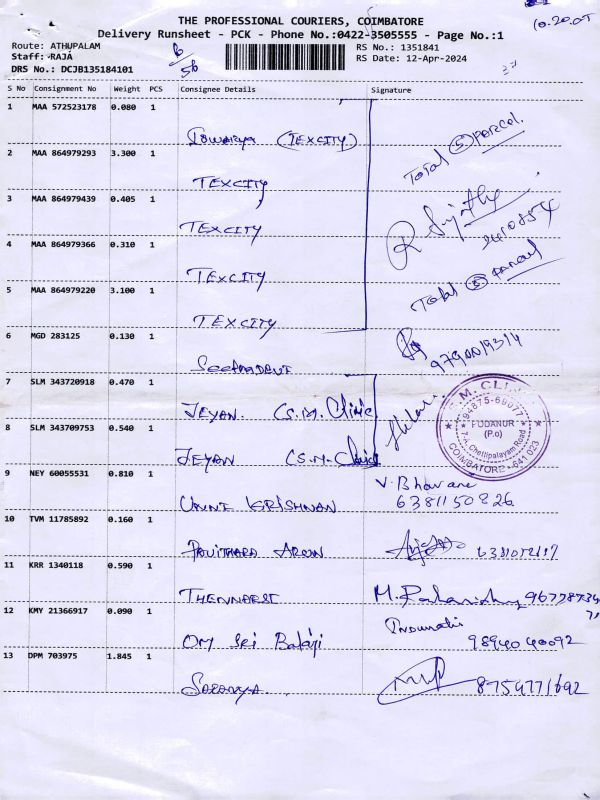 10.20.05
THE PROFESSIONAL COURIERS, COIMBATORE
Delivery Runsheet - PCK - Phone No.:0422-3505555 - Page No.:1
Route: ATHUPALAM
Staff: RAJA
DRS No.: DCJB135184101
6/56
RS No.: 1351841
RS Date: 12-Apr-2024
S No Consignment No Weight PCS Consignee Details Signature
1 MAA 572523178 0.080 1
(TEXCITY)
Total 5 parcel.
2 MAA 864979293 3.300 1
TEXCITY
3 MAA 864979439 0.405 1
TEXCITY
R Sujatha
4 MAA 864979366 0.310 1
TEXCITY
Total 5 parcel
5 MAA 864979220 3.100 1
TEXCITY
6 MGD 283125 0.130 1
SeethaDevi
7 SLM 343720918 0.470 1
JEYAN. (S.M. Clinic
8 SLM 343709753 0.540 1
JEYAN (S.M. Clinic
S.M. CLINIC
94875-69077
PUDANUR
(P.o)
7-A, Chettipalayam Road
COIMBATORE - 641 023
9 NEY 60055531 0.810 1
UNNI KRISHNAN
V. Bhavani
6381150826
10 TVM 11785892 0.160 1
PAVITHARA ARUN
11 KRR 1340118 0.590 1
THENNARSI
12 KMY 21366917 0.090 1
OM Sri Balaji
Indumathi
9894040092
13 DPM 703975 1.845 1
Saranya
8754771692